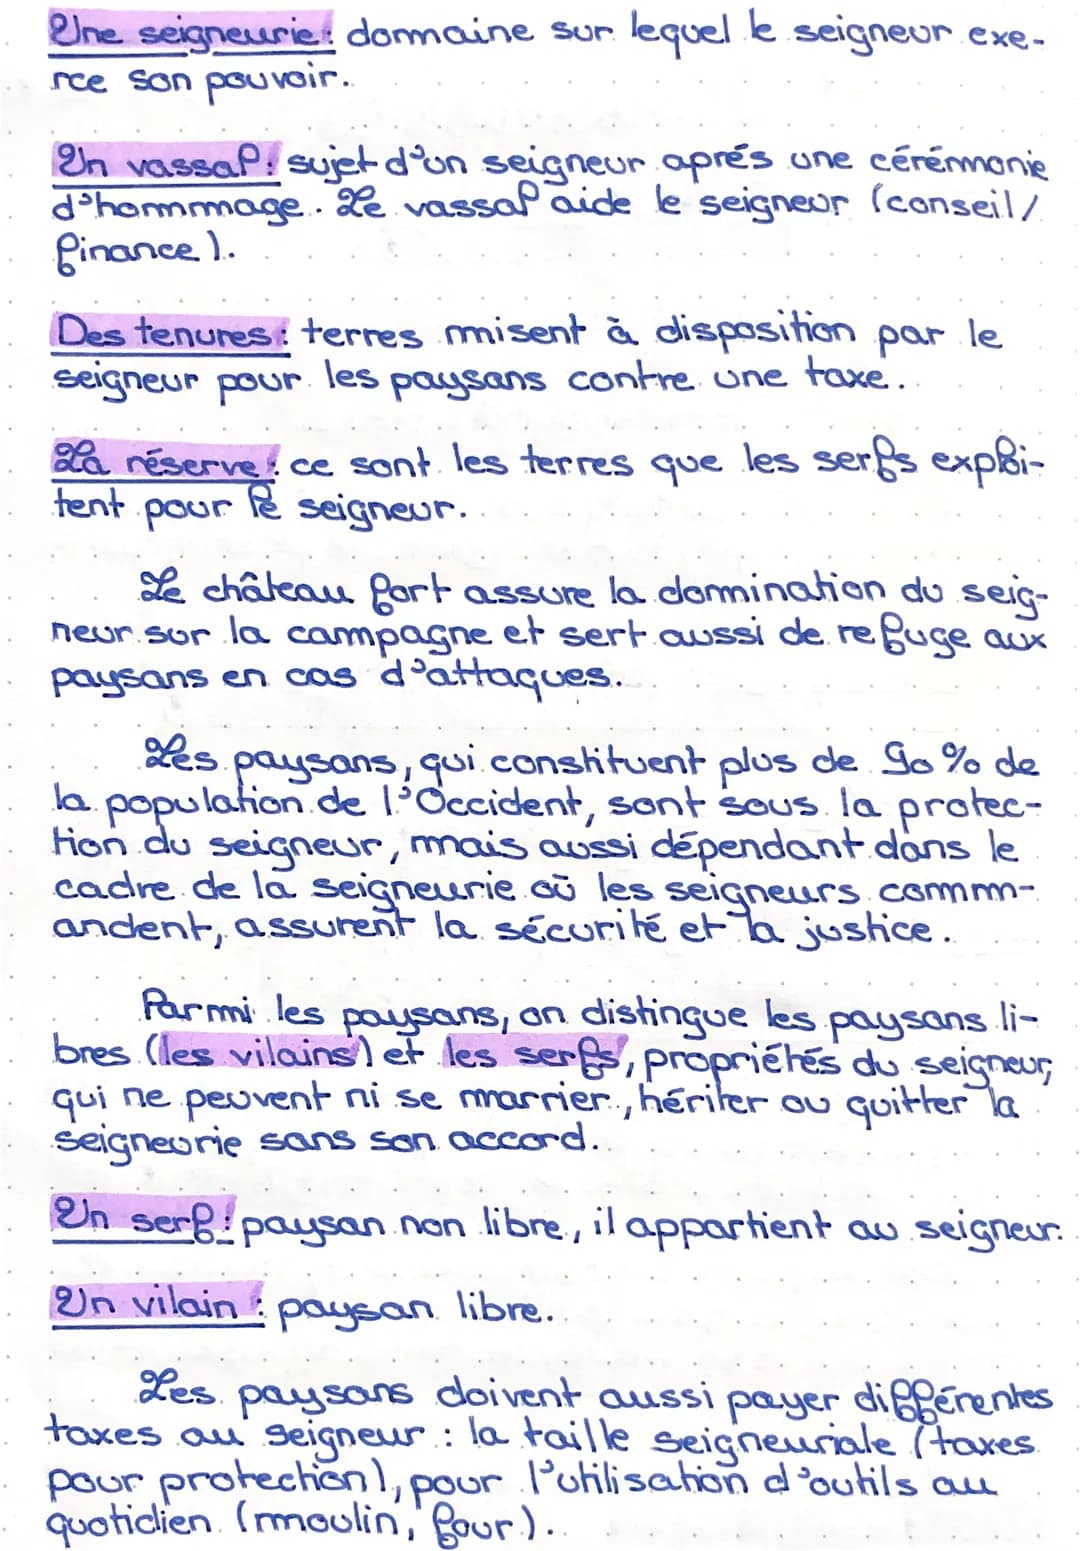 Une seigneurie : domaine sur lequel le seigneur exe-
rce son pouvoir.
Un vassal : sujet d'un seigneur aprés une cérémonie
d'hommage. Le vassal aide le seigneur (conseil/
finance).
Des tenures : terres misent à disposition par le
seigneur pour les paysans contre une taxe.
La réserve : ce sont les terres que les serfs exploi-
tent pour le seigneur.
Le château fort assure la domination du seig-
neur sur la campagne et sert aussi de refuge aux
paysans en cas d'attaques.
Les paysans, qui constituent plus de 90 % de
la population de l'Occident, sont sous la protec-
tion du seigneur, mais aussi dépendant dans le
cadre de la seigneurie où les seigneurs comm-
andent, assurent la sécurité et la justice.
Parmi les paysans, on distingue les paysans li-
bres (les vilains) et les serfs, propriétés du seigneur,
qui ne peuvent ni se marrier, hériter ou quitter la
seigneurie sans son accord.
Un serf : paysan non libre, il appartient au seigneur.
Un vilain : paysan libre.
Les paysans doivent aussi payer différentes
taxes au seigneur : la taille seigneuriale (taxes
pour protection), pour l'utilisation d'outils au
quotidien (moulin, four).